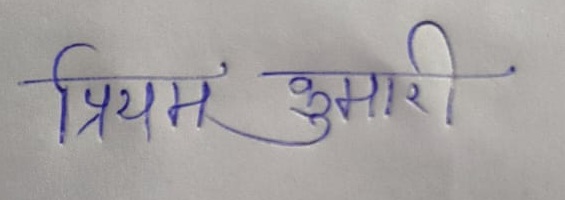 प्रियम कुमारी